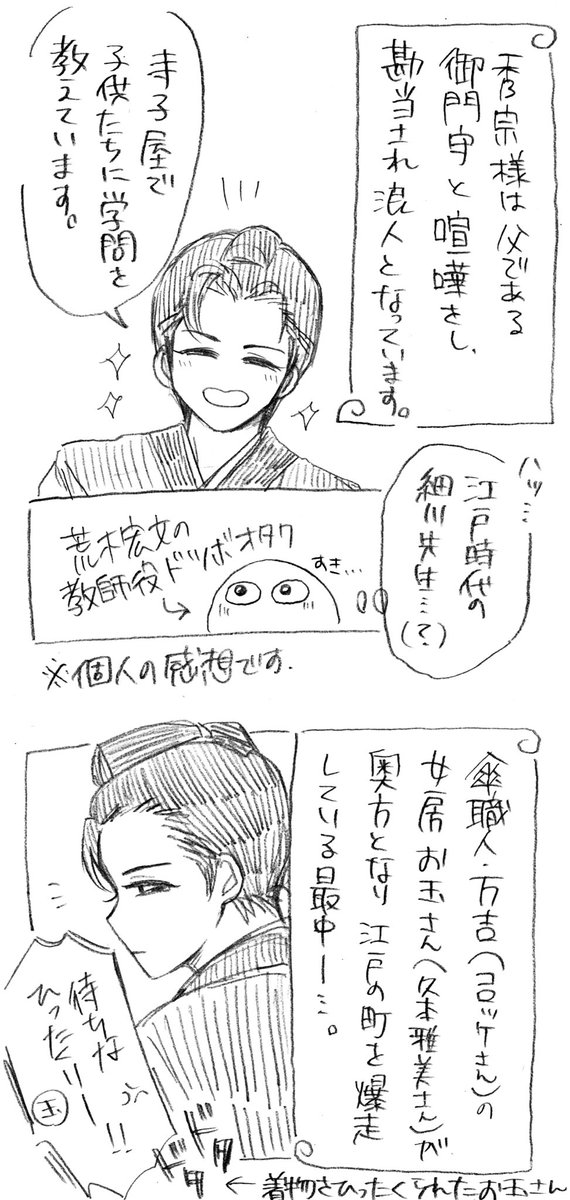 秀宗様は父である
御門守と喧嘩をし、
勘当され浪人となっています。
寺子屋で
子供たちに学問を
教えています。
ハッ…
江戸時代の
細川先生…(?)
荒木宏文の
教師役ドツボオタク
すき…
※個人の感想です.
傘職人・方吉(コロッケさん)の
女房お玉さん(久本雅美さん)が
奥方となり江戸の町を爆走
している最中ー…。
待ちな
ひったくりー!!
玉
ドドドド
←着物をひったくられたお玉さん